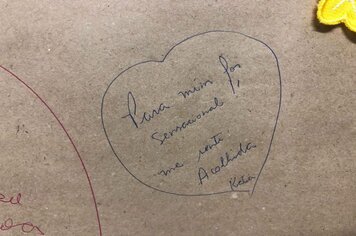 Para mim foi
sensacional
me senti
Acolhida